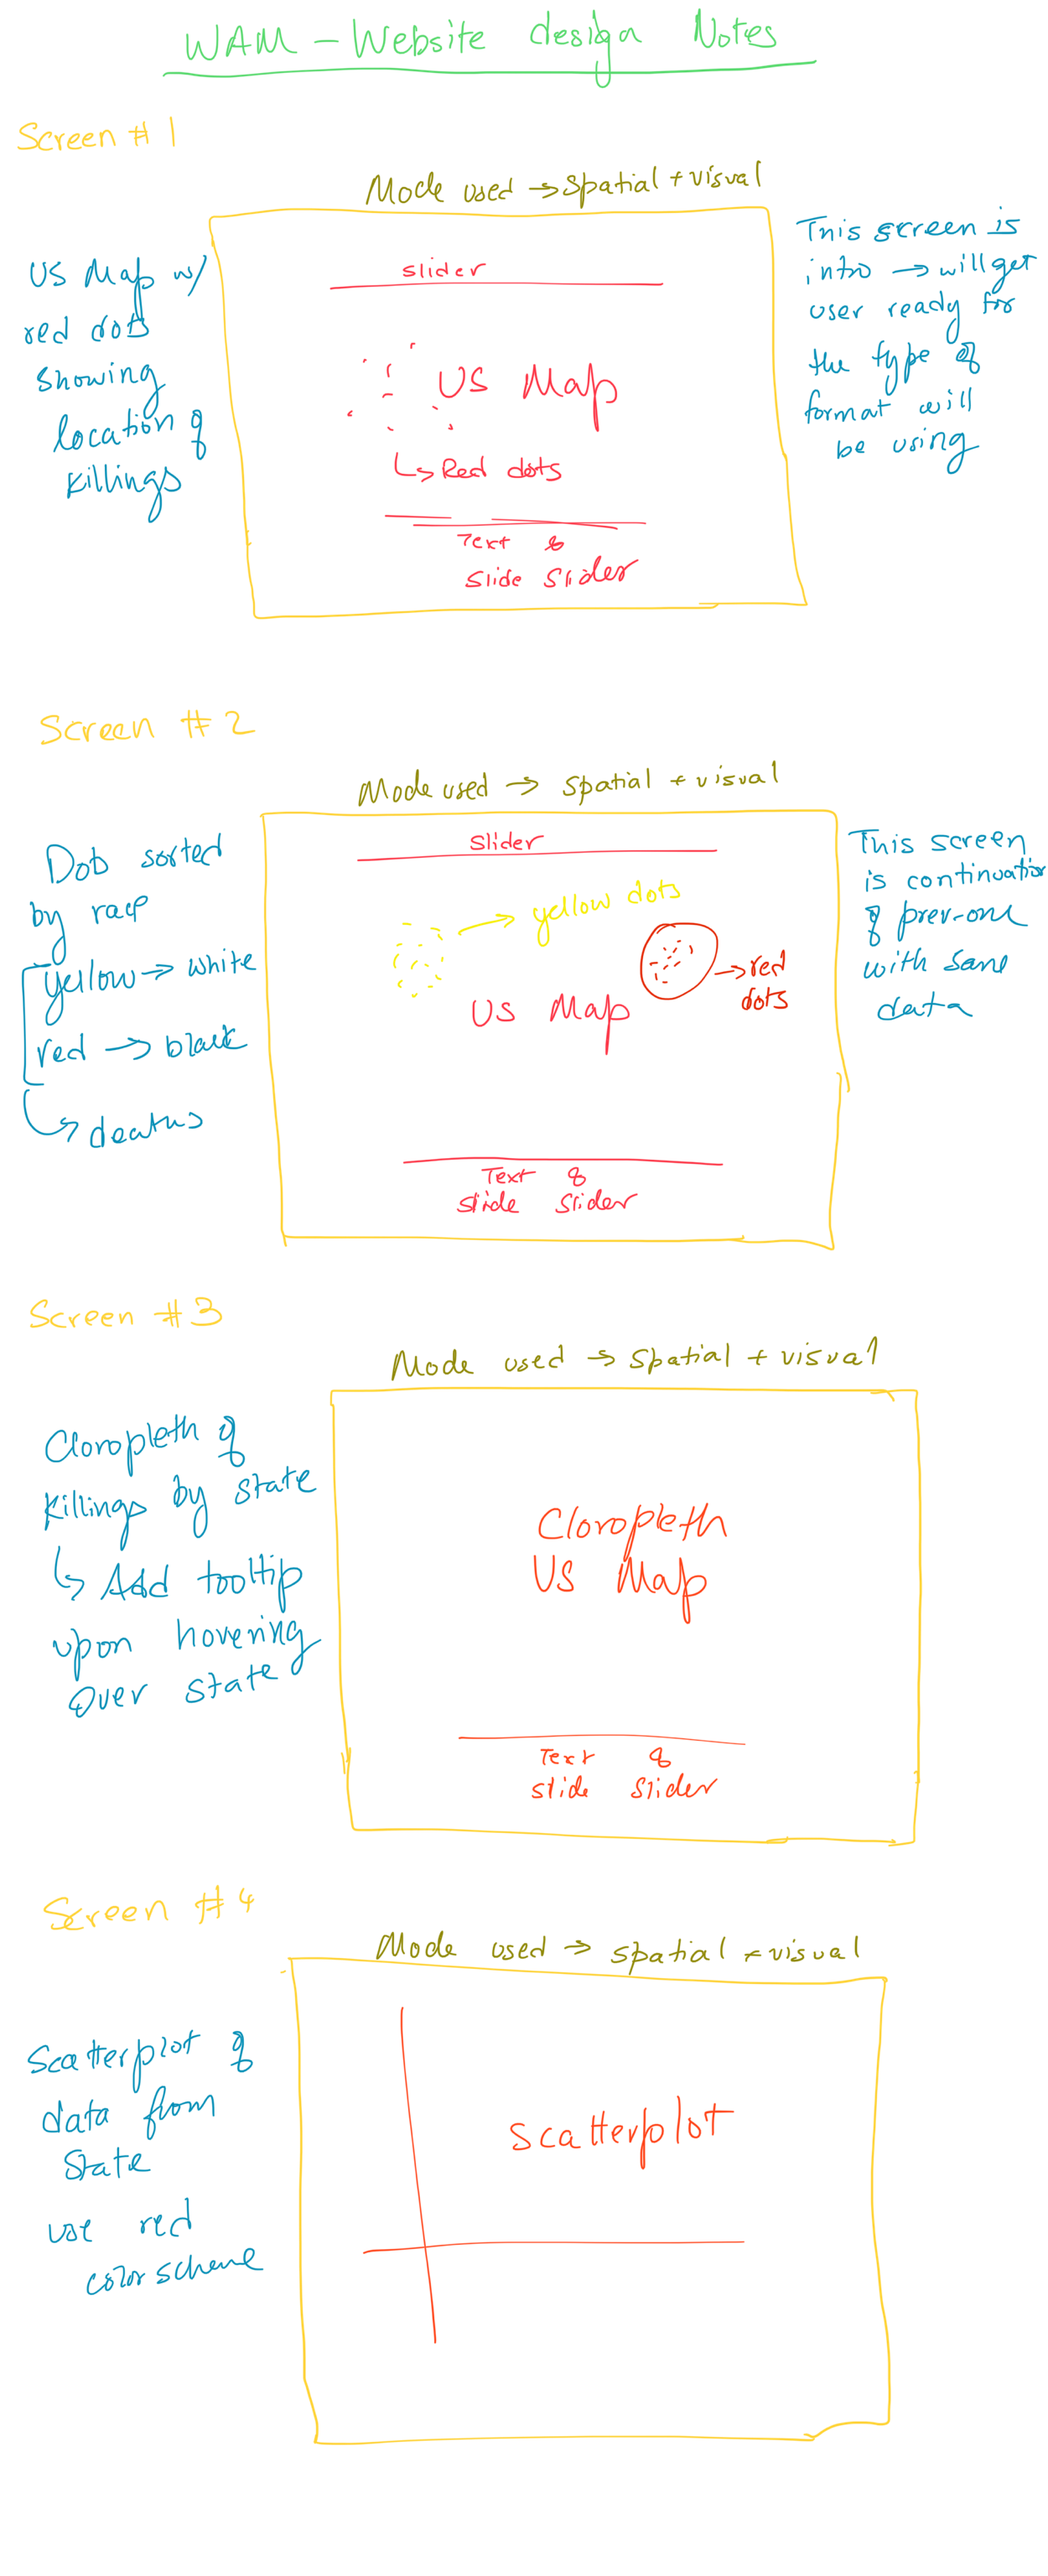 WAM - Website design Notes
Screen # 1
Mode used → spatial + visual
US Map w/
red dots
showing
location of
killings
slider
US Map
↳ Red dots
Text &
slide slider
This screen is
intro → will get
user ready for
the type of
format will
be using
Screen # 2
Mode used → spatial + visual
Dots sorted
by race
yellow → white
red → black
↳ deaths
slider
→ yellow dots
→ red
dots
US Map
Text &
slide slider
This screen
is continuation
of prev-one
with same
data
Screen #3
Mode used → spatial + visual
Cloropleth of
killings by state
↳ Add tooltip
upon hovering
over state
Cloropleth
US Map
Text &
slide slider
Screen # 4
Mode used → spatial + visual
Scatterplot of
data from
state
use red
color scheme
Scatterplot